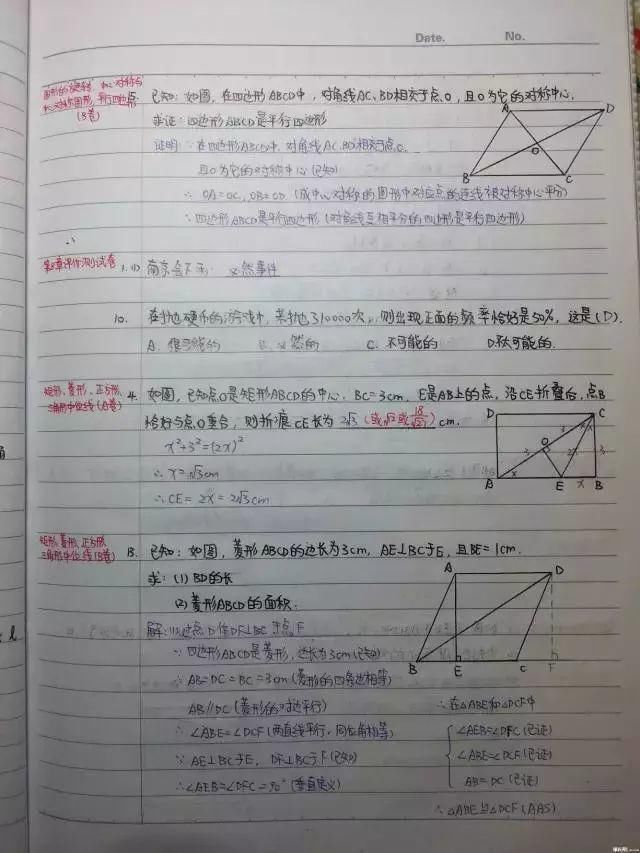 Date.    No.
图形的旋转，中心对称与 已知：如图，在四边形ABCD中，对角线AC、BD相交于点O，且O为它的对称中心.
中心对称图形，平行四边形 求证：四边形ABCD是平行四边形
(B卷) 证明：∵在四边形ABCD中，对角线AC、BD相交于点O.
A D
O
B C
且O为它的对称中心(已知)
∴OA=OC，OB=OD (成中心对称的图形中对应点的连线被对称中心平分)
∴四边形ABCD是平行四边形 (对角线互相平分的四边形是平行四边形)
第8章评价测试卷 1.(1) 南京会下雨: 必然事件
10. 在抛硬币的游戏中，若抛10000次，则出现正面的频率恰好是50%，这是(D).
A. 很可能的 B. 必然的 C. 不可能的 D.不太可能的.
矩形、菱形、正方形、 4. 如图，已知点O是矩形ABCD的中心. BC=3cm. E是AB上的点，沿CE折叠后，点B
三角形中位线(A卷) 恰好与点O重合，则折痕CE长为 2√3 (或√12或18/√27) cm.
x²+3²=(2x)²
∴x=√3cm
∴CE=2x=2√3cm
D C
3
O
3 3
A x E x B
矩形、菱形、正方形、
三角形中位线(B卷) 13. 已知：如图，菱形ABCD的边长为3cm，AE⊥BC于E，且BE=1cm.
求：(1) BD的长
(2) 菱形ABCD的面积.
A D
B E C F
解：(1)过点D作DF⊥BC于点F
∵四边形ABCD是菱形，边长为3cm(已知)
∴AB=DC=BC=3cm(菱形的四条边相等)
AB∥DC (菱形的对边平行)
∴∠ABE=∠DCF(两直线平行，同位角相等)
∵AE⊥BC于E，DF⊥BC于F(已知)
∴∠AEB=∠DFC=90°(垂直定义)
∴在△ABE和△DCF中
∠AEB=∠DFC (已证)
∠ABE=∠DCF (已证)
AB=DC (已证)
∴△ABE≌△DCF (AAS)